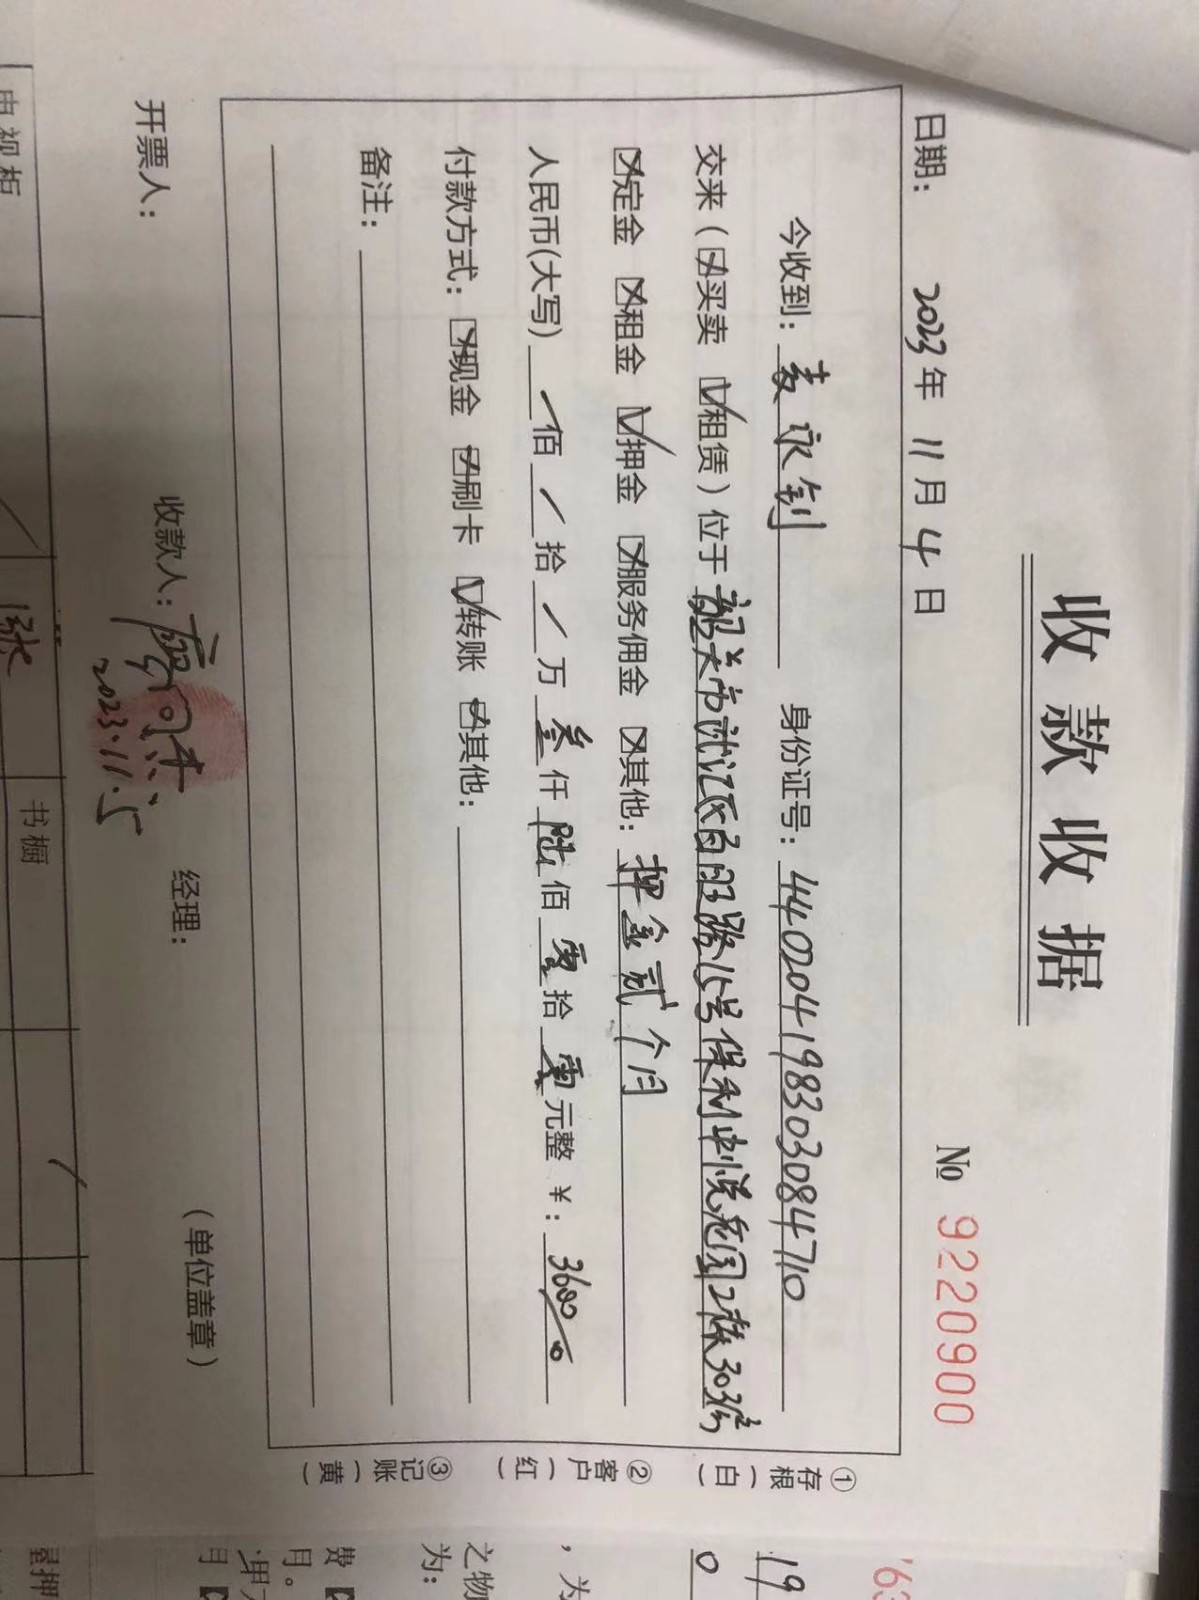 收款收据
日期： 2023年11月4日 № 9220900
今收到： 麦永钊 身份证号：440204198303084710
交来（☒买卖 ☑租赁）位于韶关市浈江区百旺路15号保利中悦花园2栋303房
☒定金 ☒租金 ☑押金 ☒服务佣金 ☒其他：押金贰个月
人民币(大写) / 佰 / 拾 / 万 叁 仟 陆 佰 零 拾 零 元整 ¥：3600
付款方式：☒现金 ☒刷卡 ☑转账 ☒其他：
备注：
开票人： 收款人： 经理： （单位盖章）
2023.11.5
①存根（白） ②客户（红） ③记账（黄）
电视柜
张
书橱
19
0
，为
之物
为：
费
月。